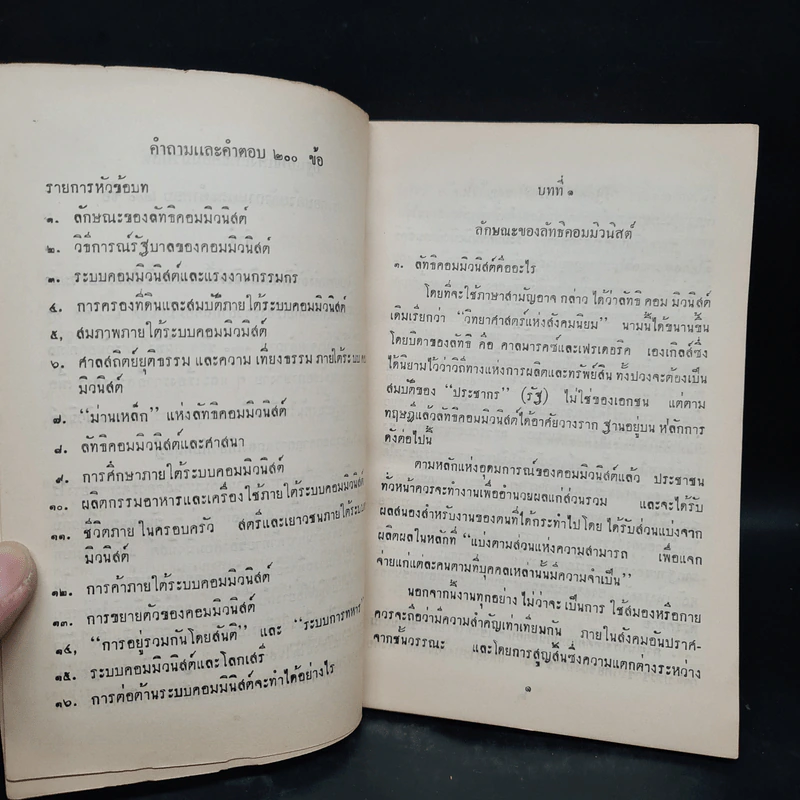 คำถามและคำตอบ ๒๐๐ ข้อ
รายการหัวข้อบท
๑. ลักษณะของลัทธิคอมมิวนิสต์
๒. วิธีการณ์รัฐบาลของคอมมิวนิสต์
๓. ระบบคอมมิวนิสต์และแรงงานกรรมกร
๔. การครองที่ดินและสมบัติภายใต้ระบบคอมมิวนิสต์
๕, สมภาพภายใต้ระบบคอมมิวนิสต์
๖. ศาลสถิตย์ยุติธรรม และความ เที่ยงธรรม ภายใต้ระบบ คอ
มิวนิสต์
๗. “ม่านเหล็ก” แห่งลัทธิคอมมิวนิสต์
๘. ลัทธิคอมมิวนิสต์และศาสนา
๙. การศึกษาภายใต้ระบบคอมมิวนิสต์
๑๐. ผลิตกรรมอาหารและเครื่องใช้ภายใต้ระบบคอมมิวนิสต์
๑๑. ชีวิตภาย ในครอบครัว สตรีและเยาวชนภายใต้ระบบ
มิวนิสต์
๑๒. การค้าภายใต้ระบบคอมมิวนิสต์
๑๓. การขยายตัวของคอมมิวนิสต์
๑๔, “การอยู่รวมกันโดยสันติ” และ “ระบบการทหาร”
๑๕. ระบบคอมมิวนิสต์และโลกเสรี
๑๖. การต่อต้านระบบคอมมินิสต์จะทำได้อย่างไร
บทที่ ๑
ลักษณะของลัทธิคอมมิวนิสต์
๑. ลัทธิคอมมิวนิสต์คืออะไร
โดยที่จะใช้ภาษาสามัญอาจ กล่าว ได้ว่าลัทธิ คอม มิวนิสต์
เดิมเรียกว่า “วิทยาศาสตร์แห่งสังคมนิยม” นามนี้ได้ขนานขึ้น
โดยบิดาของลัทธิ คือ คาลมารคซ์และเฟรเดอริค เองเกิลส์ซึ่ง
ได้นิยามไว้ว่าวิถีทางแห่งการผลิตและทรัพย์สิน ทั้งปวงจะต้องเป็น
สมบัติของ “ประชากร” (รัฐ) ไม่ใช่ของเอกชน แต่ตาม
ทฤษฎีแล้วลัทธิคอมมิวนิสต์ได้อาศัยวางราก ฐานอยู่บน หลักการ
ดังต่อไปนี้
ตามหลักแห่งอุดมการณ์ของคอมมิวนิสต์แล้ว ประชาชน
ทั่วหน้าควรจะทำงานเพื่ออำนวยผลแก่ส่วนรวม และจะได้รับ
ผลสนองสำหรับงานของตนที่ได้กระทำไปโดย ได้รับส่วนแบ่งจาก
ผลิตผลในหลักที่ “แบ่งตามส่วนแห่งความสามารถ เพื่อแจก
จ่ายแก่แต่ละคนตามที่บุคคลเหล่านั้นมีความจำเป็น”
นอกจากนี้งานทุกอย่าง ไม่ว่าจะ เป็นการ ใช้สมองหรือกาย
ควรจะถือว่ามีความสำคัญเท่าเทียมกัน ภายในสังคมอันปราศ-
จากชั้นวรรณะ และโดยการสูญสิ้นซึ่งความแตกต่างระหว่าง
๑